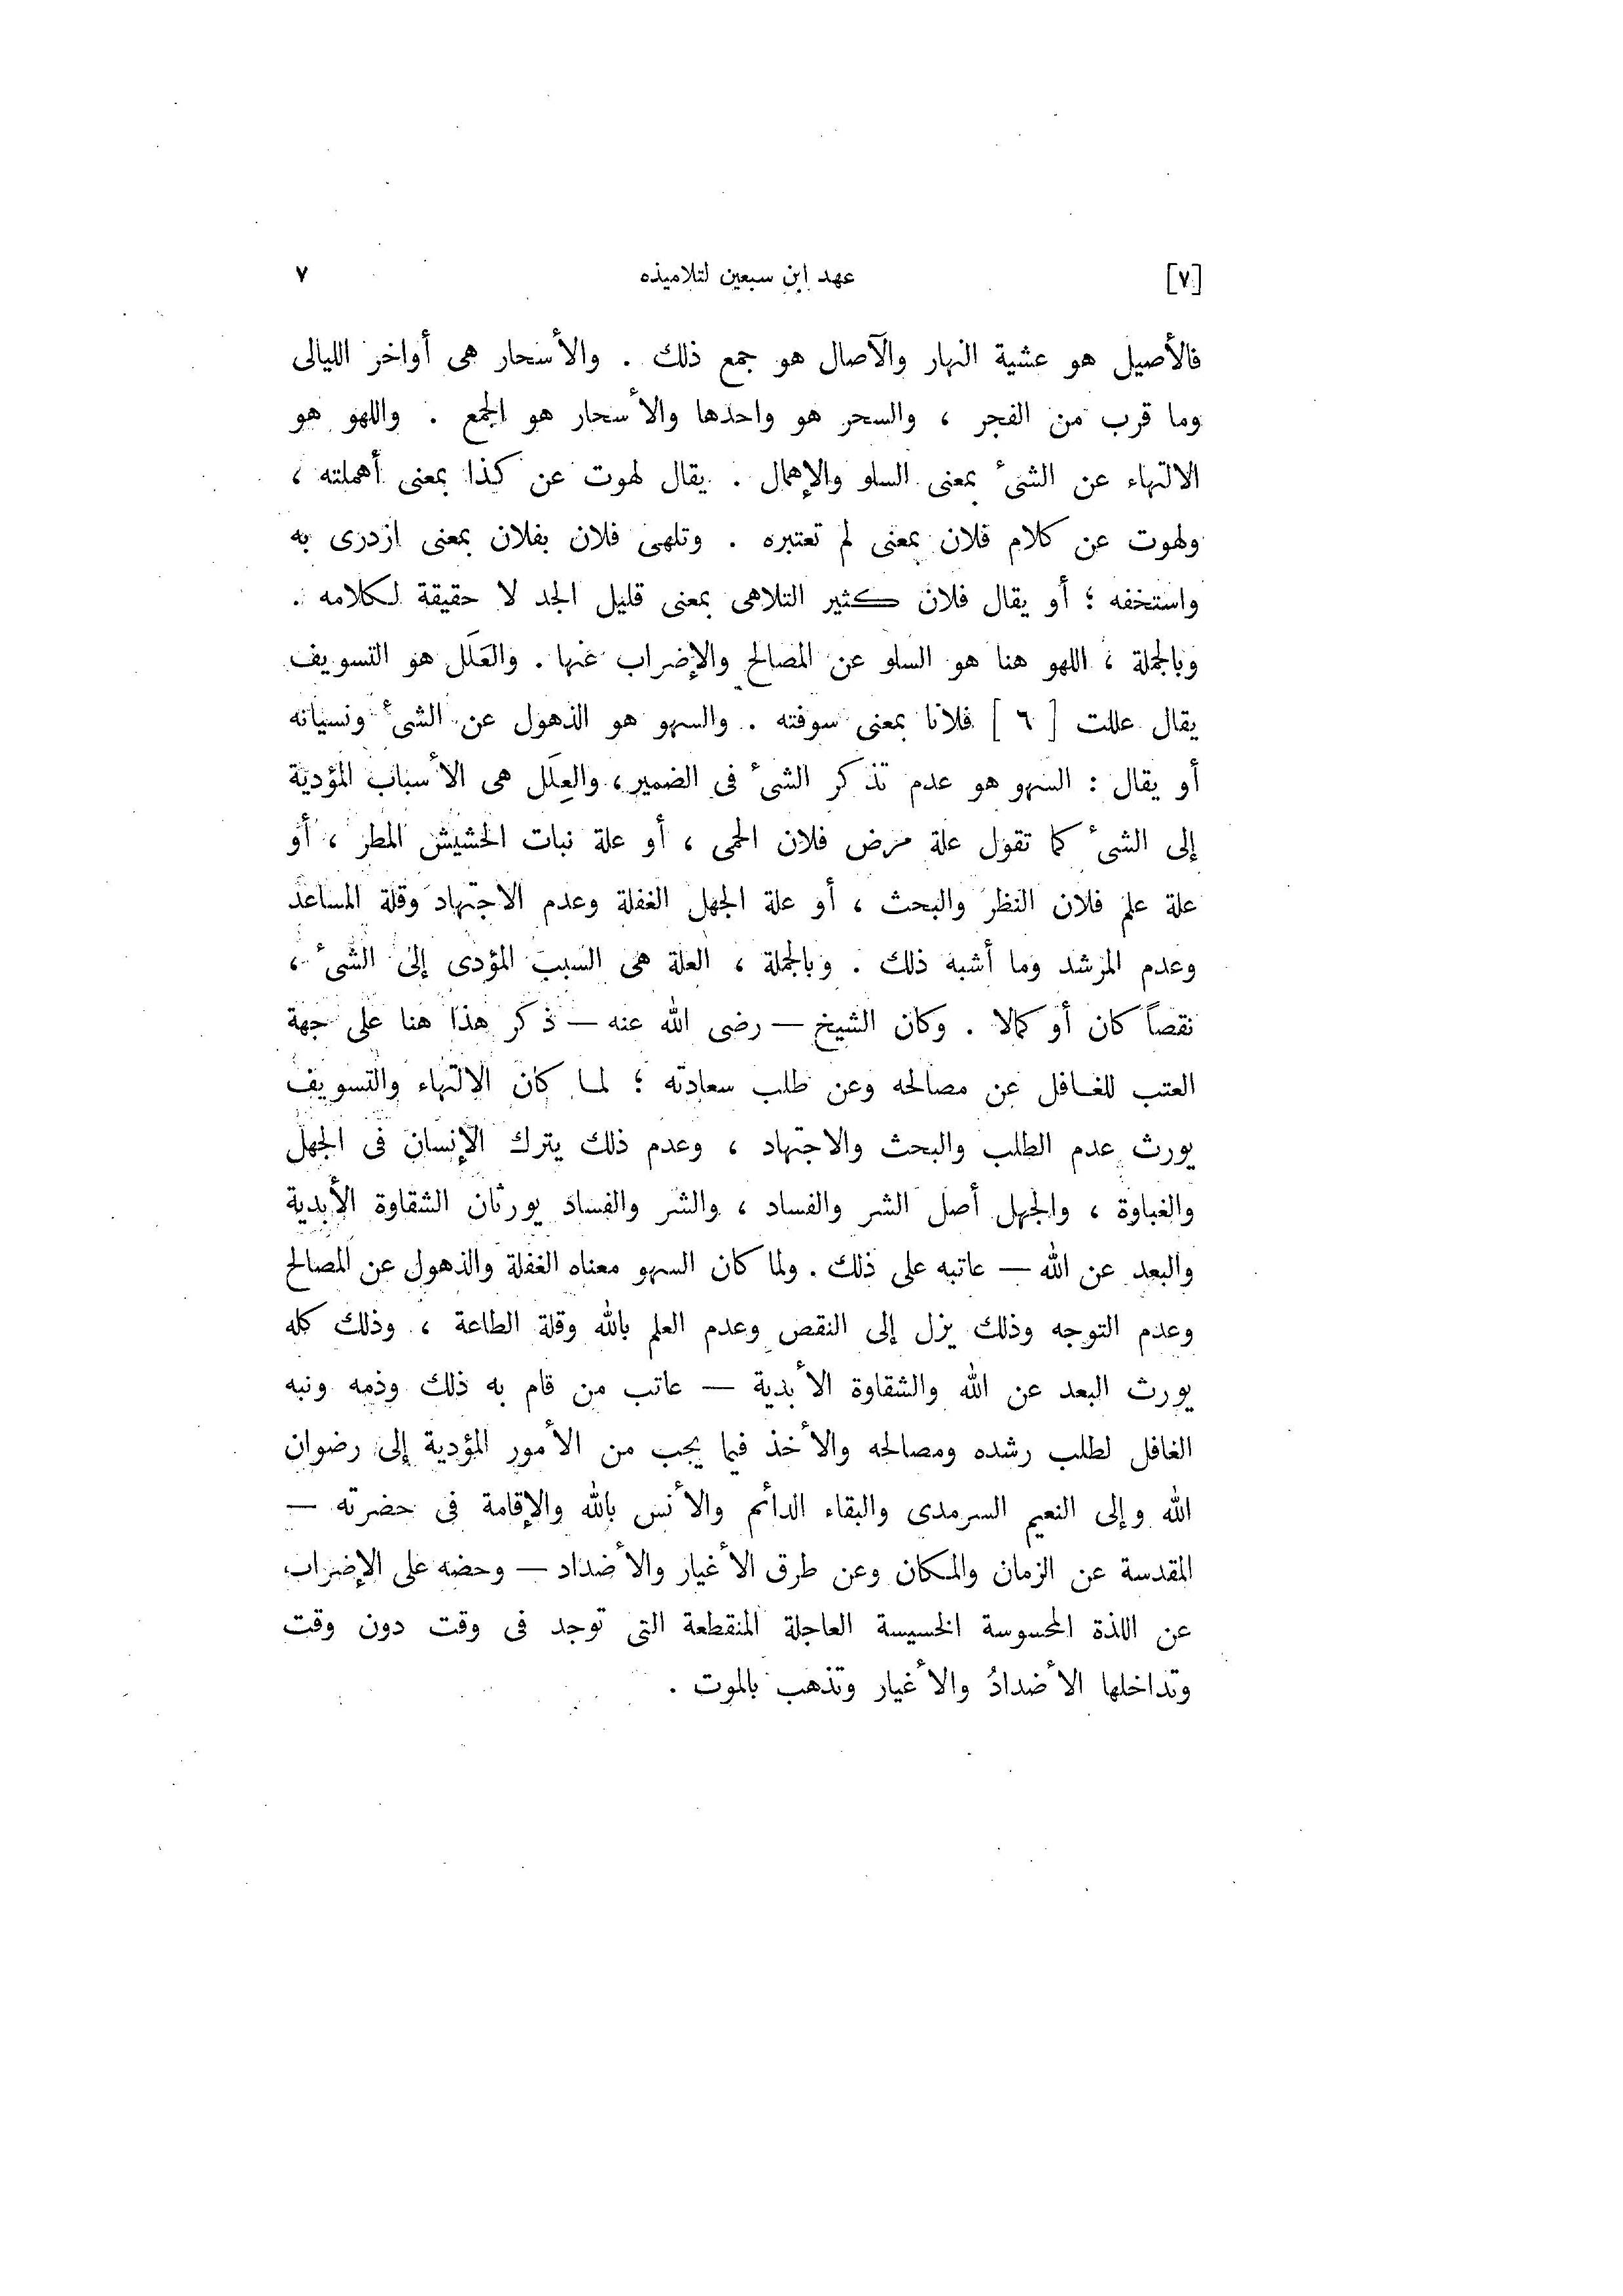 [٧] عهد ابن سبعين لتلاميذه ٧
فالأصيل هو عشية النهار والآصال هو جمع ذلك . والأسحار هى أواخر الليالى
وما قرب من الفجر ، والسحر هو واحدها والأسحار هو الجمع . واللهو هو
الالتهاء عن الشىء بمعنى السلو والإهمال . يقال لهوت عن كذا بمعنى أهملته ،
ولهوت عن كلام فلان بمعنى لم تعتبره . وتلهى فلان بفلان بمعنى ازدرى به
واستخفه ؛ أو يقال فلان كثير التلاهى بمعنى قليل الجد لا حقيقة لكلامه .
وبالجملة ، اللهو هنا هو السلو عن المصالح والإضراب عنها . والعَلَل هو التسويف
يقال عللت [ ٦ ] فلانا بمعنى سوفته . والسهو هو الذهول عن الشىء ونسيانه
أو يقال : السهو هو عدم تذكر الشىء فى الضمير ، والعِلَل هى الأسباب المؤدية
إلى الشىء كما تقول علة مرض فلان الحمى ، أو علة نبات الحشيش المطر ، أو
علة علم فلان النظر والبحث ، أو علة الجهل الغفلة وعدم الاجتهاد وقلة المساعد
وعدم المرشد وما أشبه ذلك . وبالجملة ، العلة هى السبب المؤدى إلى الشىء ،
نقصاً كان أو كمالا . وكان الشيخ — رضى الله عنه — ذكر هذا هنا على جهة
العتب للغافل عن مصالحه وعن طلب سعادته ؛ لما كان الالتهاء والتسويف
يورث عدم الطلب والبحث والاجتهاد ، وعدم ذلك يترك الإنسان فى الجهل
والغباوة ، والجهل أصل الشر والفساد ، والشر والفساد يورثان الشقاوة الأبدية
والبعد عن الله — عاتبه على ذلك . ولما كان السهو معناه الغفلة والذهول عن المصالح
وعدم التوجه وذلك يزل إلى النقص وعدم العلم بالله وقلة الطاعة ، وذلك كله
يورث البعد عن الله والشقاوة الأبدية — عاتب من قام به ذلك وذمه ونبه
الغافل لطلب رشده ومصالحه والأخذ فيما يجب من الأمور المؤدية إلى رضوان
الله وإلى النعيم السرمدى والبقاء الدائم والأنس بالله والإقامة فى حضرته —
المقدسة عن الزمان والمكان وعن طرق الأغيار والأضداد — وحضه على الإضراب
عن اللذة المحسوسة الخسيسة العاجلة المنقطعة التى توجد فى وقت دون وقت
وتداخلها الأضدادُ والأغيار وتذهب بالموت .